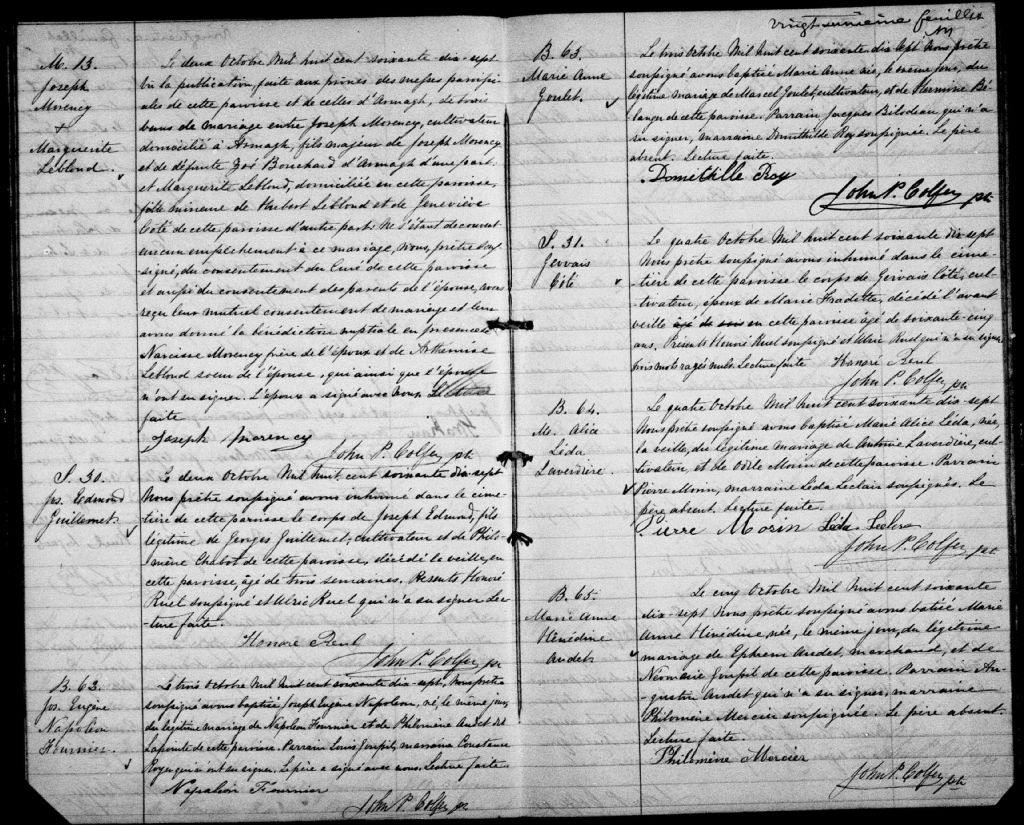 M. 13.
Joseph
Morency
+
Marguerite
Leblond.
Le deux Octobre Mil huit cent soixante dix-sept
vu la publication, faite aux prônes des messes paroissi-
ales de cette paroisse et de celles d'Armagh, de trois
bans de mariage entre Joseph Morency, cultivateur
domicilié à Armagh, fils majeur de Joseph Morency
et de défunte Bouchard d'Armagh d'une part
et Marguerite Leblond, domiciliée en cette paroisse,
fille mineure de Hubert Leblond et de Geneviève
Côté de cette paroisse d'autre part: Ne s'étant découvert
aucun empêchement à ce mariage, Nous, prêtre sous-
signé, du consentement du Curé de cette paroisse
et aussi du consentement des parents de l'épouse, avons
reçu leur mutuel consentement de mariage et leur
avons donné la bénédiction nuptiale en présence de
Narcisse Morency frère de l'époux et de Arthémise
Leblond soeur de l'épouse, qui ainsi que l'épouse
n'ont su signer. L'époux a signé avec nous. Lecture
faite
Joseph Morency
John P. Colfer ptr
S. 30.
Jos. Edmond
Guillemet.
Le deux Octobre Mil huit cent soixante dix-sept
Nous prêtre soussigné avons inhumé dans le cime-
tière de cette paroisse le corps de Joseph Edmond, fils
légitime de Georges Guillemet, cultivateur et de Philo-
mène Chabot de cette paroisse, décédé la veille, en
cette paroisse, âgé de trois semaines. Présents Honoré
Ruel soussigné et Ulric Ruel qui n'a su signer Lec-
ture faite.
Honoré Reul
John P. Colfer ptr
B. 62.
Jos. Eugène
Napoléon
Fournier.
Le trois Octobre Mil huit cent soixante dix-sept, Nous prêtre
soussigné avons baptisé Joseph Eugène Napoléon, né, le même jour,
du légitime mariage de Napoléon Fournier et de Philomène Audet dit
Lapointe de cette paroisse. Parrain Louis Goupil, marraine Constance
Royer qui n'ont su signer. Le père a signé avec nous. Lecture faite
Napoléon Fournier
John P. Colfer ptr
vingt unième feuillet
B. 63.
Marie Anne
Goulet.
Le trois Octobre Mil huit cent soixante dix sept Nous prêtre
soussigné avons baptisé Marie Anne née, le même jour, du
légitime mariage de Marcel Goulet, cultivateur, et de Hermine Bé-
langer de cette paroisse. Parrain Jacques Bilodeau qui n'a
su signer, marraine Domithilde Roy soussignée. Le père
absent. Lecture faite.
Domithille Roy
John P. Colfer ptr
S. 31.
Gervais
Côté
Le quatre Octobre Mil huit cent soixante dix-sept
Nous prêtre soussigné avons inhumé dans le cime-
tière de cette paroisse le corps de Gervais Côté, cul-
tivateur, époux de Marie Fradette, décédé l'avant
veille âgé de soix en cette paroisse âgé de soixante-cinq
ans. Présents Honoré Ruel soussigné et Ulric Ruel qui n'a su signer
trois mots rayés nuls. Lecture faite Honoré Reul
John P. Colfer ptr
B. 64.
M. Alice
Léda
Laverdière.
Le quatre Octobre Mil huit cent soixante dix-sept
Nous prêtre soussigné avons baptisé Marie Alice Léda, née,
la veille, du légitime mariage de Antoine Laverdière, cul-
tivateur, et de Odile Morin de cette paroisse. Parrain
Pierre Morin, marraine Léda Leclair soussignés. Le
père absent. Lecture faite.
Pierre Morin Léda Leclerc
John P. Colfer ptr
B. 65
Marie Anne
Hénédine
Audet
Le cinq Octobre Mil huit cent soixante
dix-sept Nous prêtre soussigné avons batisé Marie
Anne Hénédine, née, le même jour, du légitime
mariage de Ephrem Audet, marchand, et de
Goupil de cette paroisse. Parrain Au-
gustin Audet qui n'a su signer, marraine
Philomène Mercier soussignée. Le père absent.
Lecture faite.
Philomène Mercier
John P. Colfer ptr